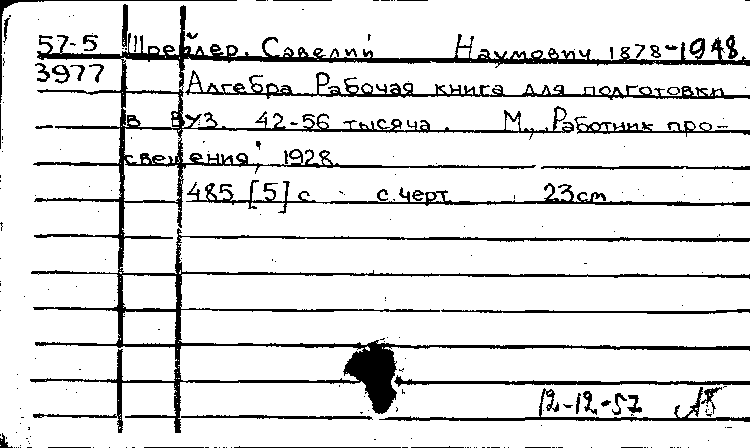 57-5 Шрейдер. Савелий Наумович, 1878-1948.
3977 Алгебра Рабочая книга для подготовки
в ВУЗ. 42-56 тысяча. М., „Работник про-
свещения", 1928.
485 [5] с. с. черт 23 cm
12-12-57